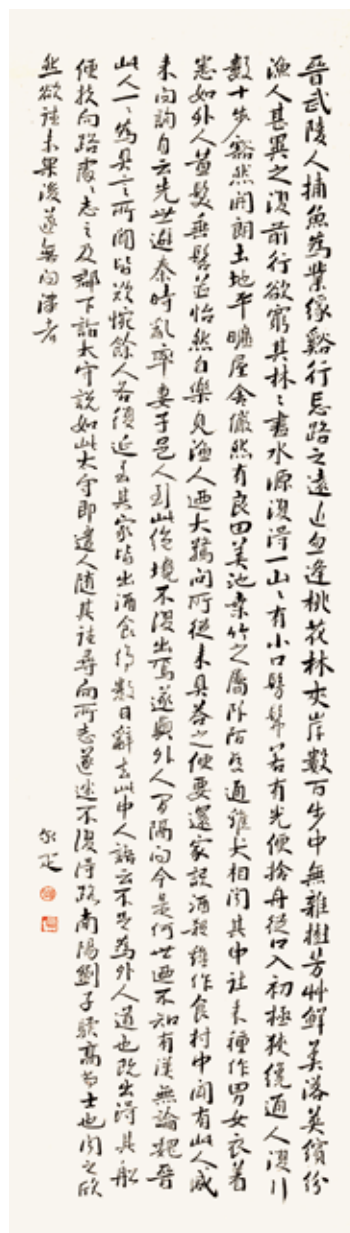 晉武陵人捕魚為業緣谿行忘路之遠近忽逢桃花林夾岸數百步中無雜樹芳艸鮮美落英繽紛
漁人甚異之復前行欲窮其林々盡水源復得一山々有小口髣髴若有光便捨舟從口入初極狹纔通人復行
數十步豁然開朗土地平曠屋舍儼然有良田美池桑竹之屬阡陌交通雞犬相聞其中往來種作男女衣着
悉如外人黃髮垂髫並怡然自樂見漁人迺大驚問所從來具答之便要還家設酒殺雞作食村中聞有此人咸
來問訊自云先世避秦時亂率妻子邑人到此絕境不復出焉遂與外人間隔問今是何世迺不知有漢無論魏晉
此人一一為具言所聞皆歎惋餘人各復延至其家皆出酒食停數日辭去此中人語云不足為外人道也既出得其船
便扶向路處々志之及郡下詣太守說如此太守即遣人隨其往尋向所志遂迷不復得路南陽劉子驥高尚士也聞之欣
然欲往未果後遂無問津者